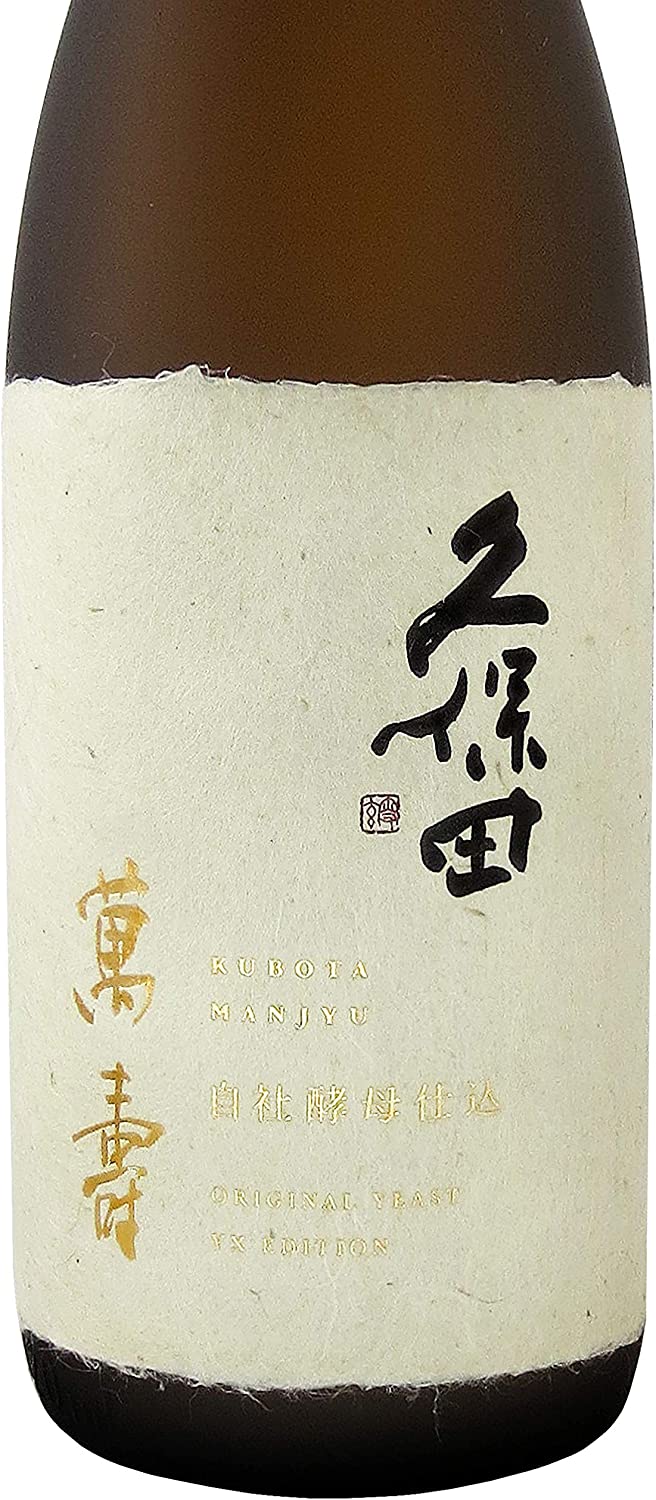 久保田
萬寿
KUBOTA
MANJYU
自社酵母仕込
ORIGINAL YEAST
YX EDITION